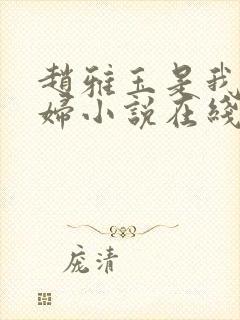 趙雅玉是我
婦小說在綫
庞清